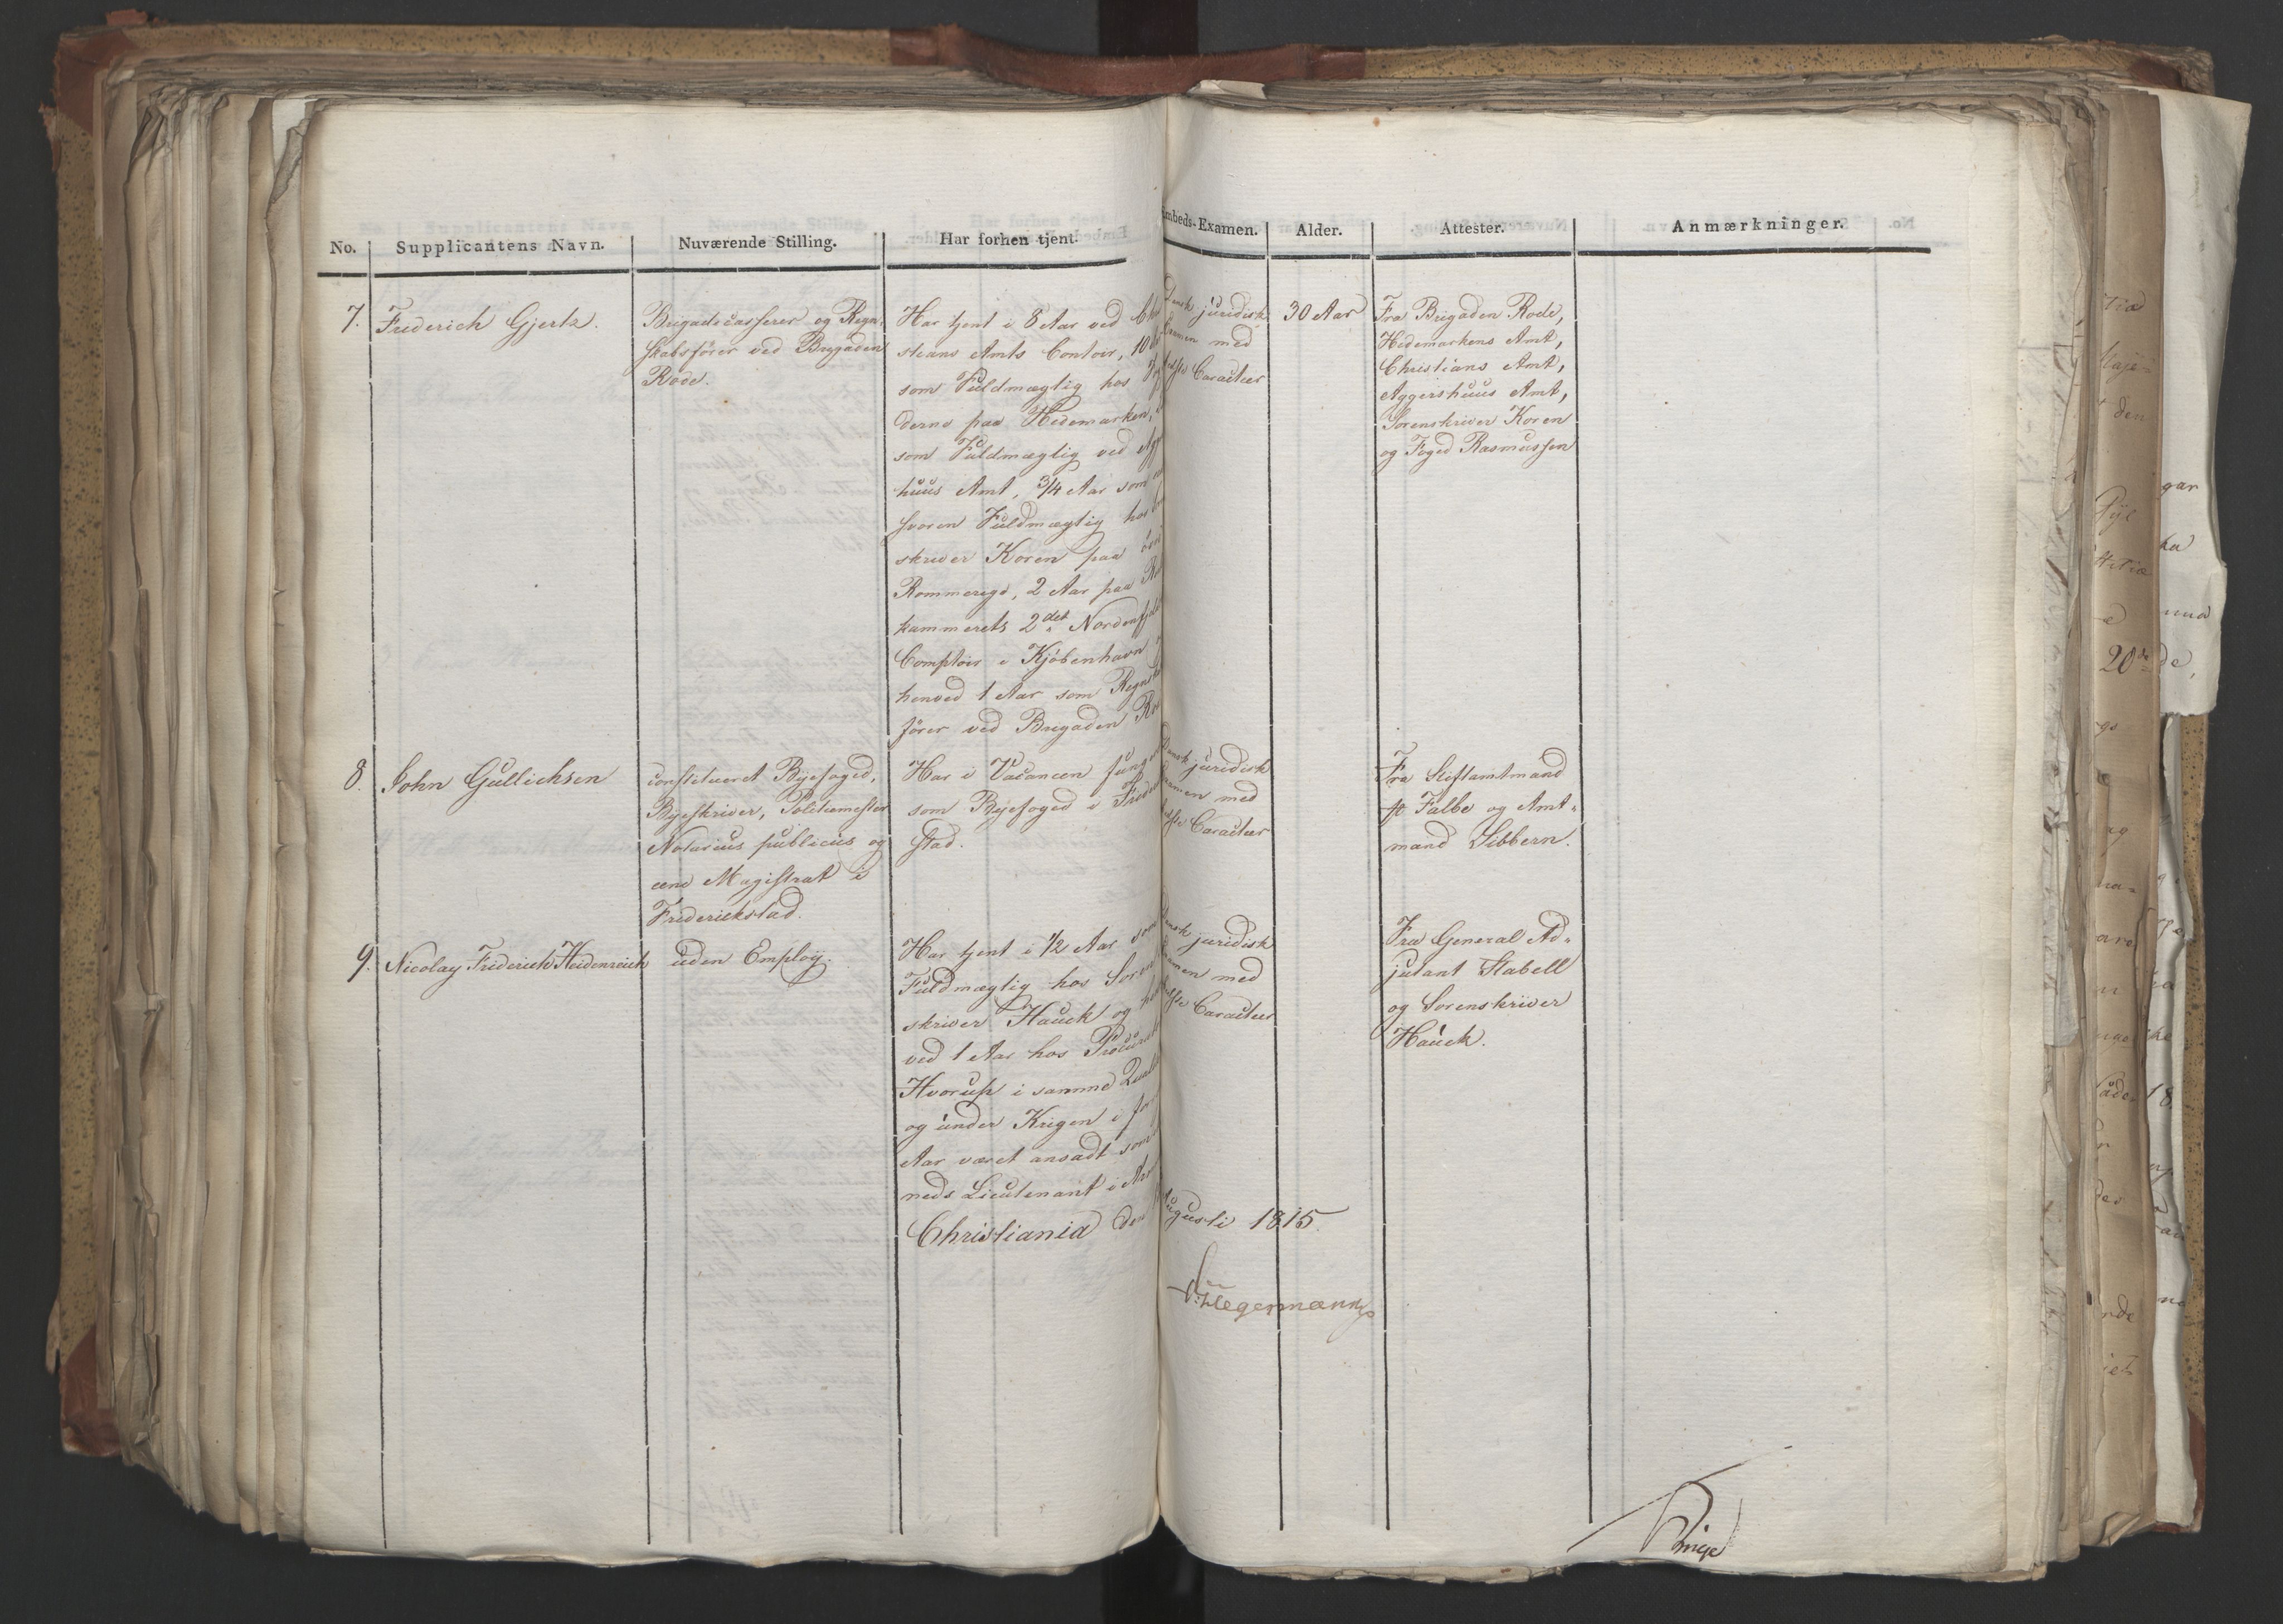 No. Supplicantens Navn. Nuværende Stilling. Har forhen tjent. Embeds-Examen. Alder. Attester. Anmærkninger.
7. Friderich Gjertz.
Brigadecasserer og Regn-
skabsfører ved Brigaden
Rode.
Har tjent i 8 Aar ved Chri
stians Amts Contoir, 10
som Fuldmægtig hos Fog
derne paa Hedemarken,
som Fuldmægtig ved Agg
huus Amt, 3/4 Aar som
svoren Fuldmægtig hos
skriver Koren paa
Rommerige, 2 Aar paa
kammerets 2det Nordenfjeld
Comptoir i Kjøbenhavn
henved 1 Aar som Regnsk
fører ved Brigaden Ro
Dansk juridisk
Examen med
Caracteer
30 Aar
Fra Brigaden Rode,
Hedemarkens Amt,
Christians Amt,
Aggershuus Amt,
Sorenskriver Koren
og Foged Rasmussen
8. John Gullichsen
constitueret Byefoged,
Byeskriver, Politiemester
Notarius publicus og
ene Magistrat i
Friderickstad.
Har i Vacancen funge
som Byefoged i Frider
stad.
Dansk juridisk
Examen med
Caracteer
Fra Stiftamtmand
Falbe og Amt-
mand Sibbern.
9. Nicolay Friderich Heidenreich
uden Employ.
Har tjent i 1/2 Aar som
Fuldmægtig hos Soren
skriver Hauck og hen
ved 1 Aar hos Procurat
Hvorup i samme Qualit
og under Krigen i for
Aar været ansadt som
neds Lieutenant i
Dansk juridisk
Examen med
Caracteer
Fra General Ad-
jutant Stabell
og Sorenskriver
Hauck.
Christiania den
Augusti 1815.
Diriks
Hegermann